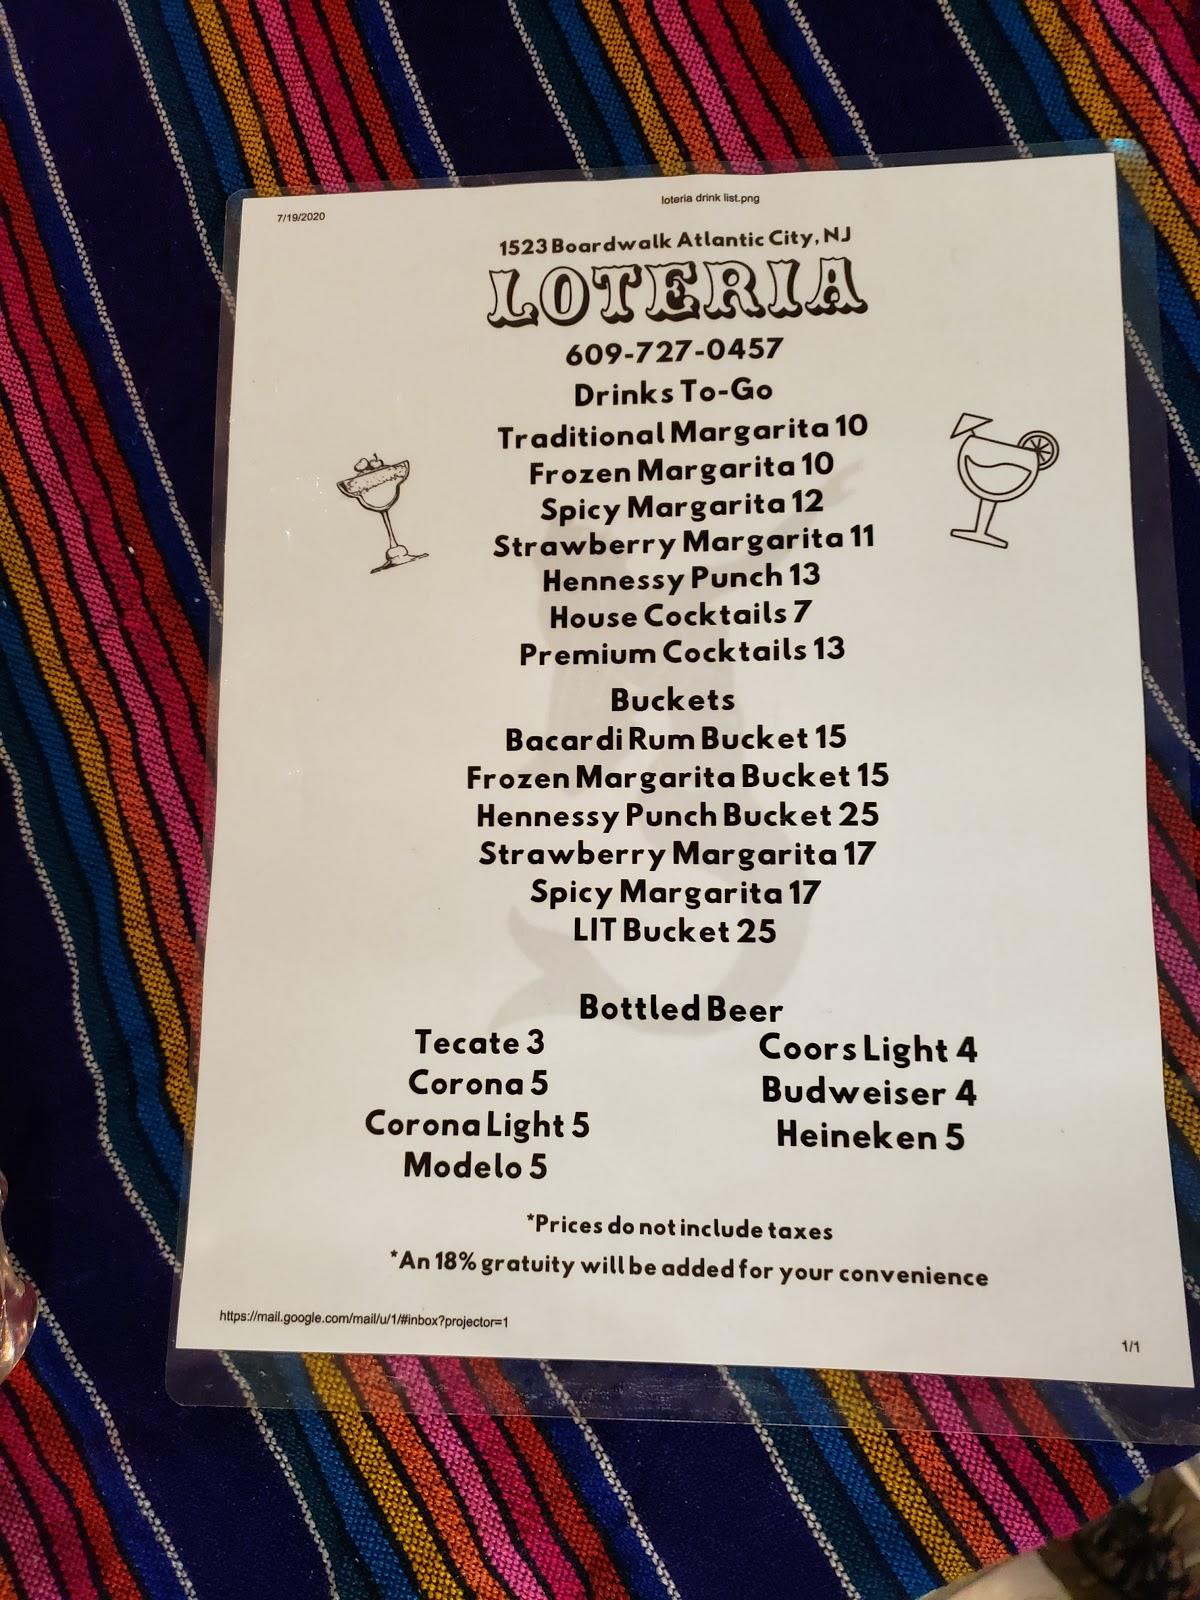 7/19/2020
loteria drink list.png
1523 Boardwalk Atlantic City, NJ
LOTERIA
609-727-0457
Drinks To-Go
Traditional Margarita 10
Frozen Margarita 10
Spicy Margarita 12
Strawberry Margarita 11
Hennessy Punch 13
House Cocktails 7
Premium Cocktails 13
Buckets
Bacardi Rum Bucket 15
Frozen Margarita Bucket 15
Hennessy Punch Bucket 25
Strawberry Margarita 17
Spicy Margarita 17
LIT Bucket 25
Bottled Beer
Tecate 3
Corona 5
Corona Light 5
Modelo 5
Coors Light 4
Budweiser 4
Heineken 5
*Prices do not include taxes
*An 18% gratuity will be added for your convenience
https://mail.google.com/mail/u/1/#inbox?projector=1
1/1